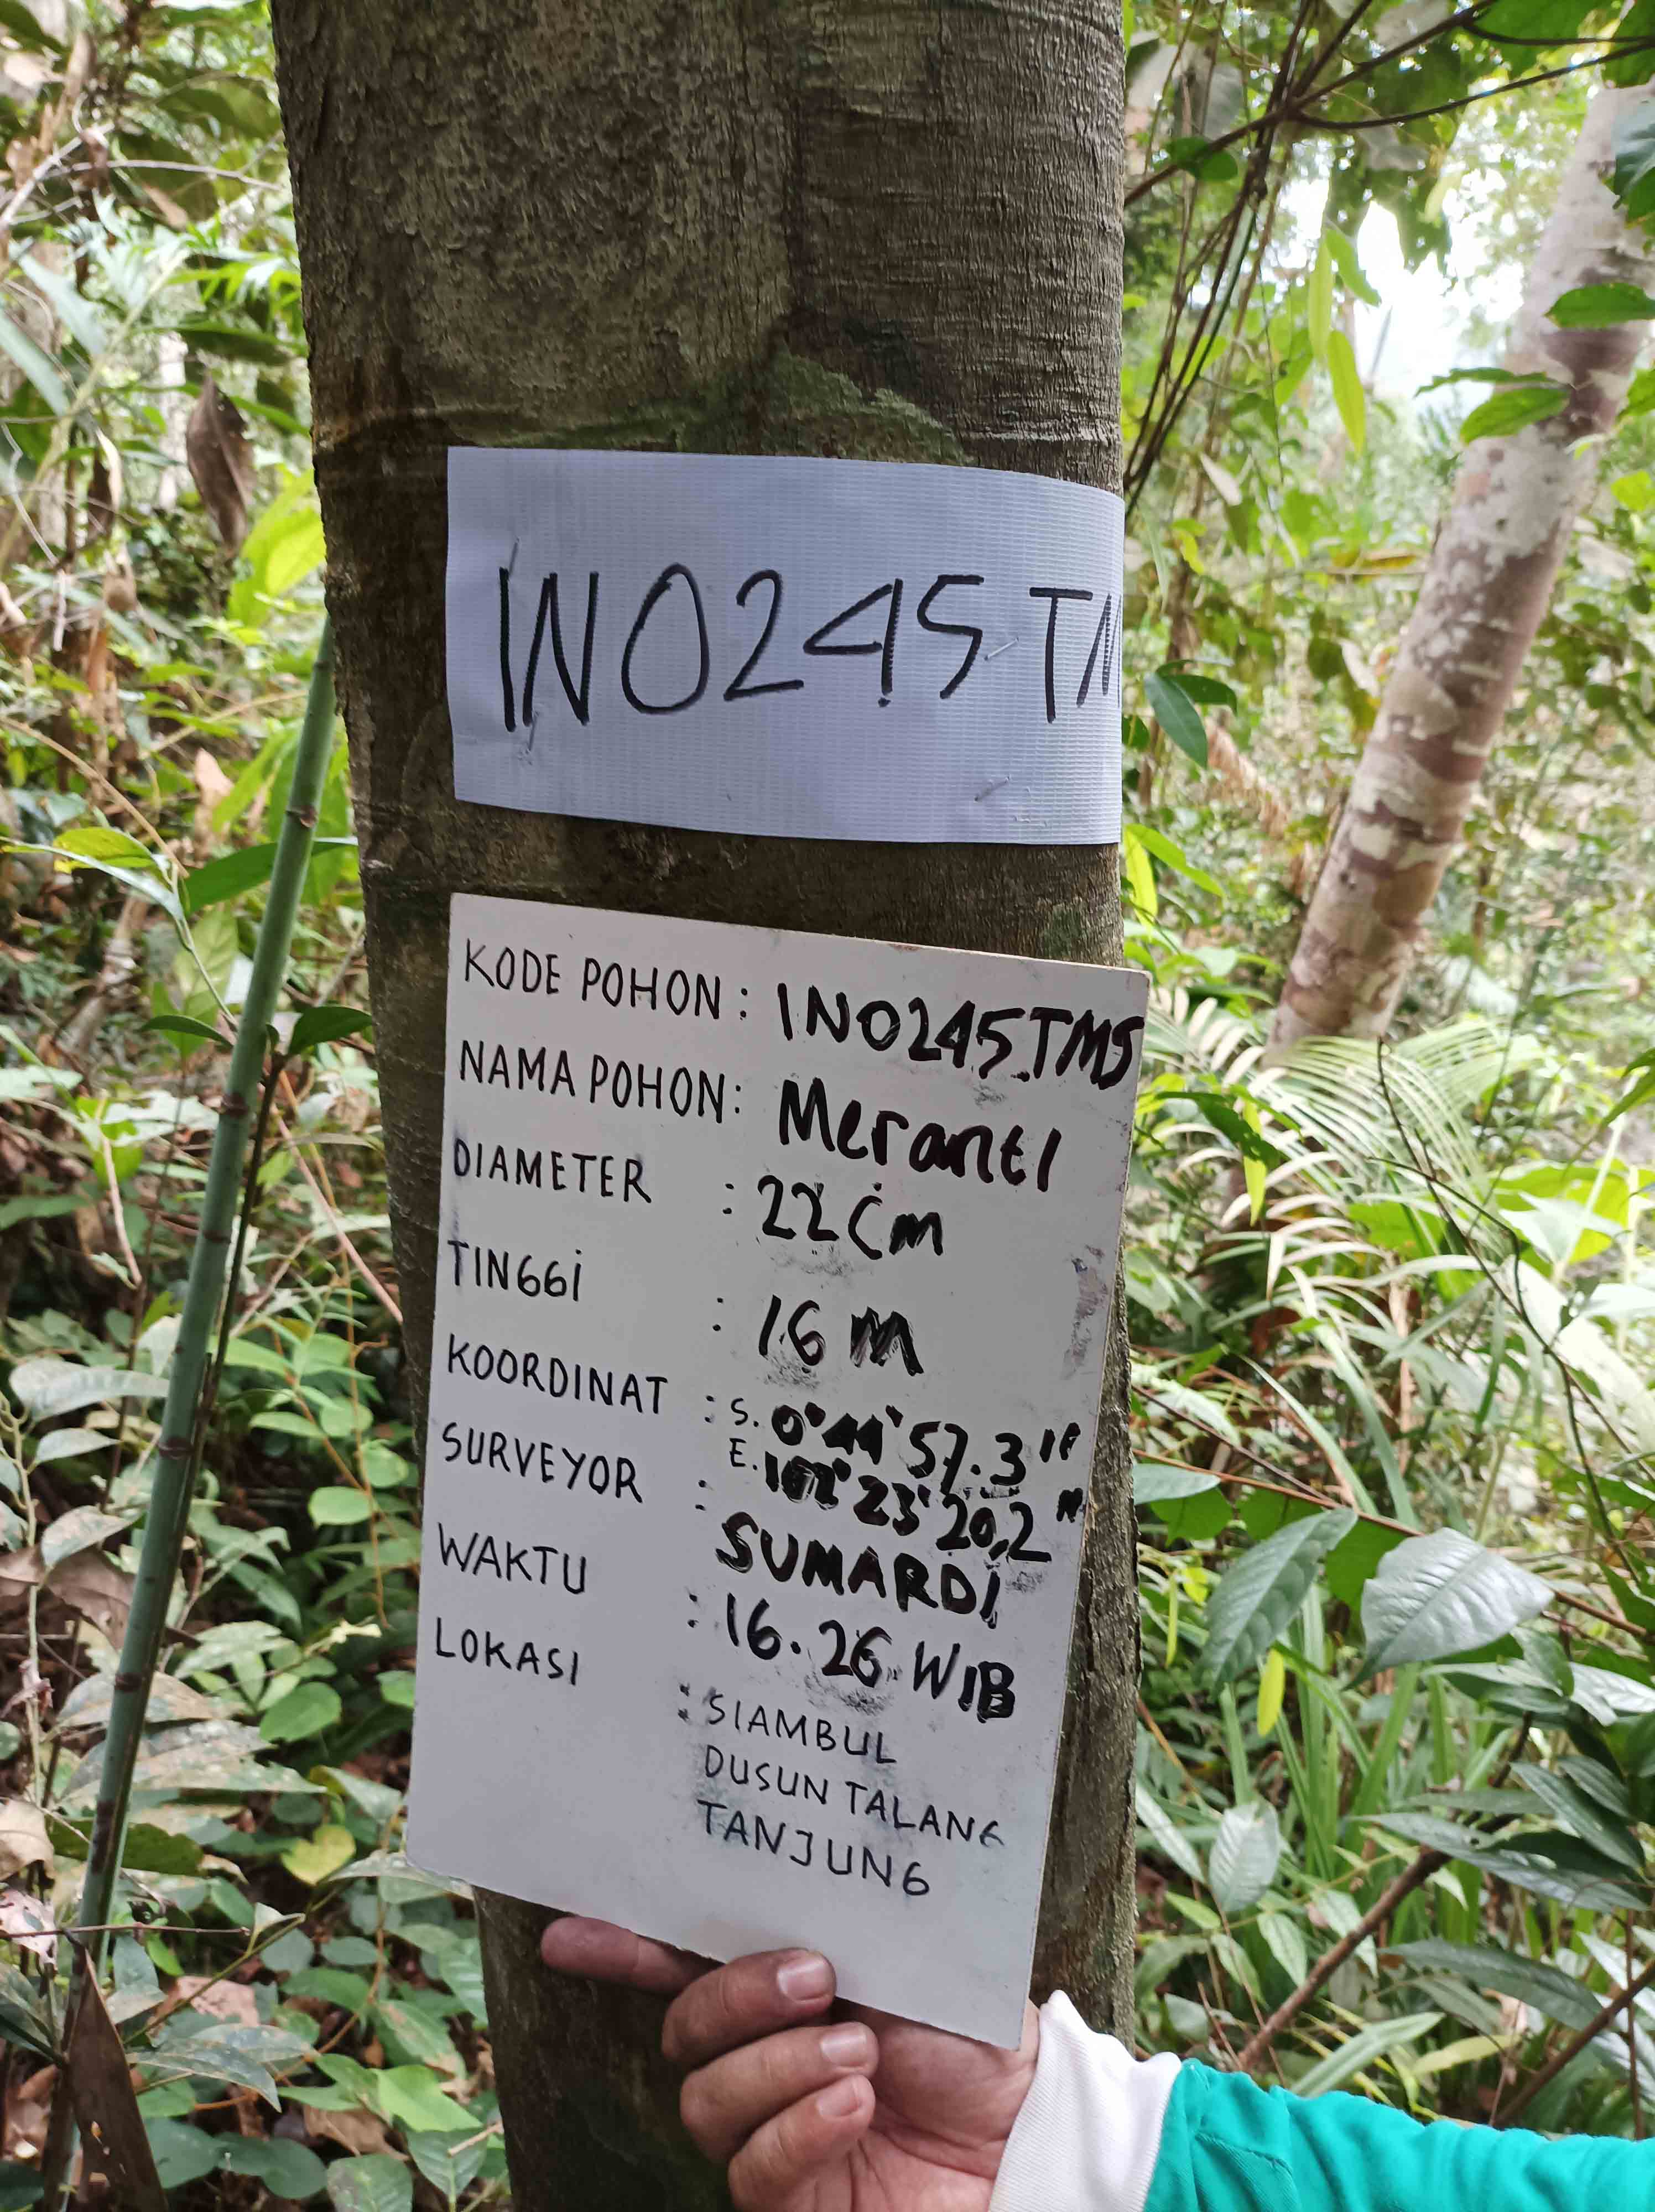 IN0245 TM
KODE POHON : IN0245.TMS
NAMA POHON : Meranti
DIAMETER : 22 Cm
TINGGI : 16 M
KOORDINAT : S. 0°44'57.3"
E. 102°23'20,2"
SURVEYOR : SUMARDI
WAKTU : 16.26 WIB
LOKASI : SIAMBUL
DUSUN TALANG
TANJUNG